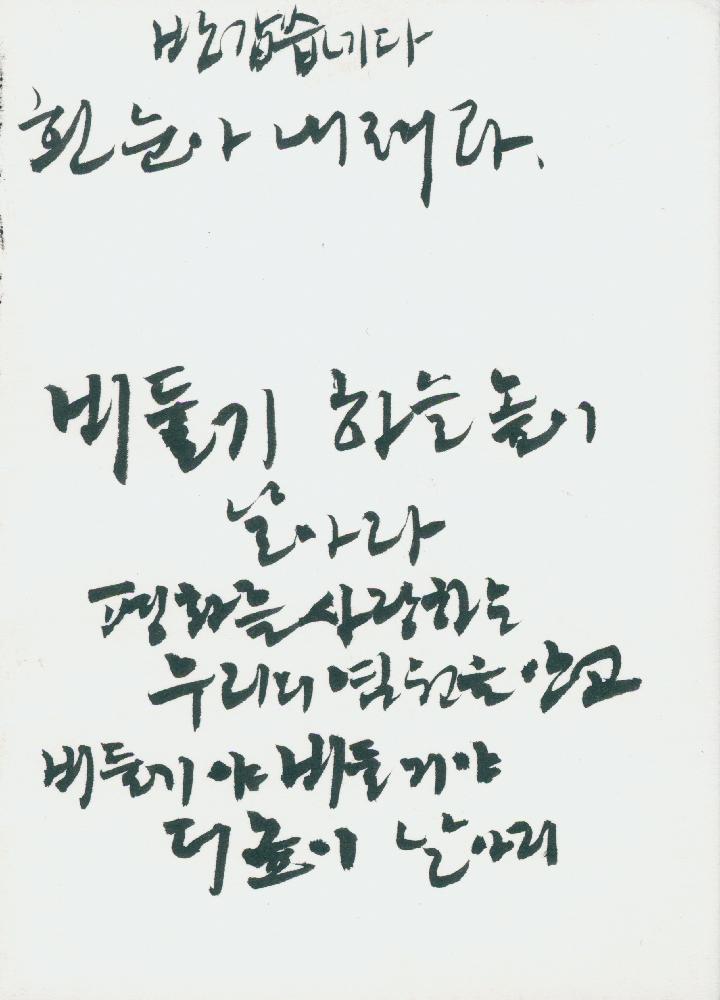 반갑습니다
흰 눈아 내려라.
비둘기 하늘 높이
날아라
평화를 사랑하는
우리의 염원을 안고
비둘기야 비둘기야
더 높이 날아라